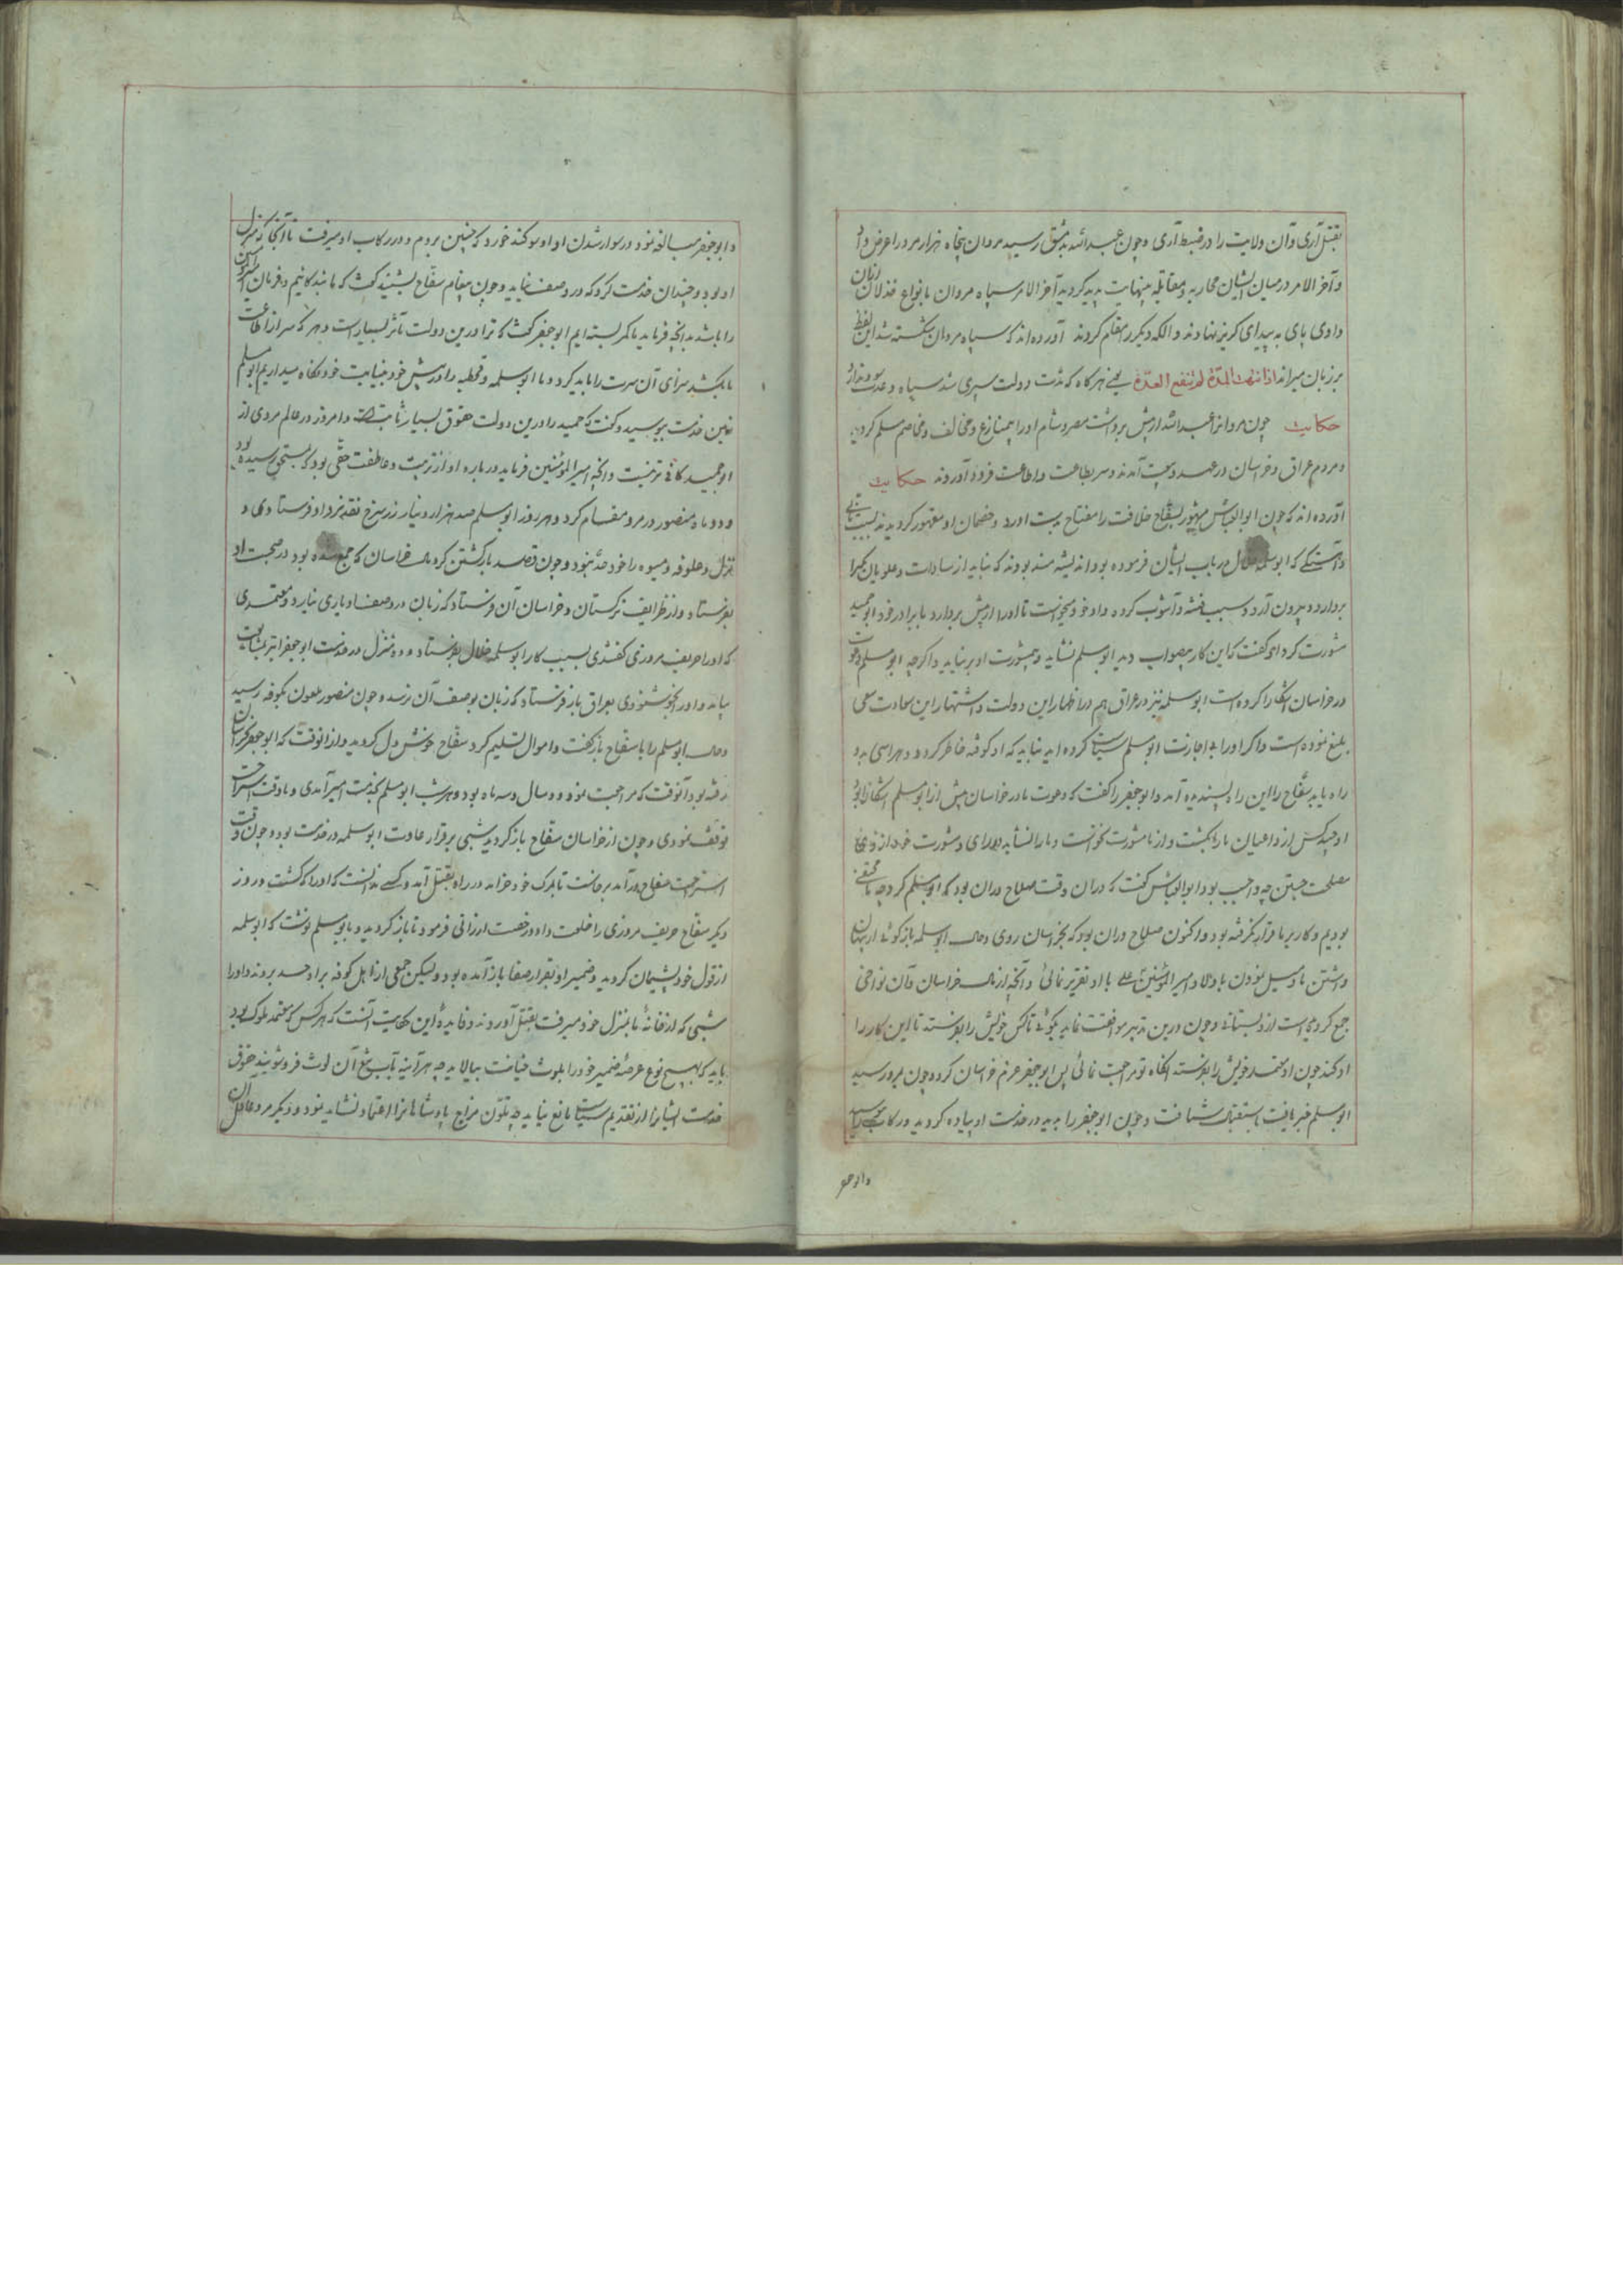 بقتل آری و آن ولایت را در ضبط آری و چون عبدالله بدمشق رسید مروان پنجاه هزار مرد را عرض داد
و آخر الامر در میان ایشان محاربه و مقابله بینهایت پدید کردید آخر الامر سپاه مروان بانواع خذلان
دادی پای به بیدای کریز نهادند و الکه دیکر را مقلم کردند آورده‌اند که سپاه مروان شکسته شد این لفظ
بر زبان میراند اذا انتهت المدّة لم تنفع العدّة یعنی هر کاه که مدت دولت سپری شد سپاه و عدت سود ندارد
حکایت چون مروانرا عبدالله از پیش برداشت مصر و شام او را بیمنازع و مخالف و مخاصم مسلم کردید
و مردم عراق و خراسان در عهد و بیعت آمدند و سر بطاعت و اطاعت فرود آوردند حکایت
آورده‌اند که چون ابوالعباس مشهور بسفاح خلافت را مفتاح بدست آورد و خصمان او مقهور کردیدند بسبب
که ابوسلمه خلال در باب ایشان فرموده بود اندیشه‌مند بودند که نباید از سادات و علویان یکیرا
بردارد و بیرون آرد و سبب فتنه و آشوب کردد و او خود میخواست تا او را از پیش بردارد با برادر خود ابو حمید
مشورت کرد او کفت که این کار بصواب دید ابومسلم نشاید و بمشورت او بر نیاید و اکرچه ابومسلم دعوت
در خراسان اشکارا کرده است ابوسلمه نیز در عراق هم در اظهار این دولت و اشتهار این سعادت سعی
بلیغ نموده است و اکر او را بی اجازت ابومسلم سیاست کرده اید نباید که او کوفته خاطر کردد و هراسی بدو
راه یابد سفاح را این رای پسندیده آمد و ابو جعفر را کفت که دعوت ما در خراسان پیش از ابومسلم اشکارا بود
او چند کس از داعیان ما را بکشت و از ما مشورت نخواست و ما را نشاید
مصلحت جستن چه واجب بود ابوالعباس کفت که در ان وقت صلاح در ان بود که ابومسلم کرد چه ما مختفی
بودیم و کار بر ما قرار نکرفته بود و اکنون صلاح در ان بود که بخراسان روی و حال ابوسلمه باز کوئی از پنهان
داشتن ما و میل نمودن با اولاد امیر المؤمنین علی با او تقریر نمائی و آنچه از مال خراسان و آن نواحی
جمع کردیده است از و بستانی و چون درین تدبیر موافقت نماید بکوئی تا کس خویش را بفرستد تا این کار را
او کند چون او معتمد خویش را بفرستد انکاه تو مراجعت نمائی پس ابو جعفر عزم خراسان کرد و چون بمرو رسید
ابومسلم خبر یافت باستقبال شتافت و چون ابو جعفر را بدید در خدمت او پیاده کردید و رکاب
و ابو جعفر
و ابو جعفر مبالغه نمود در سوار شدن او او سوکند خورد که چنین بروم و در رکاب او میرفت تا آنجا که منزل
او بود و چندان خدمت کرد که در وصف نیاید و چون پیغام سفاح بشنید کفت که ما بندکانیم و فرمان امیر المؤمنین
را باشد بدانچه فرماید ما کمر بسته ایم ابو جعفر کفت که ترا درین دولت تأثر بسیار است و هر که سر از اطاعت
ما بکشد سزای آن سرت را باید کرد و ما ابوسلمه و قحطبه را در پیش خود بنیابت خود نکاه میداریم ابومسلم
زمین خدمت ببوسید و کفت که حمید را درین دولت حقوق بسیار ثابت است و امروز در عالم مردی از
ابو حمید کافی‌تر نیست و آنچه امیر المؤمنین فرماید در باره او از تربیت و عاطفت حقی بود که بمستحق رسیده بود
و دو ماه منصور در مرو مقام کرد و هر روز ابومسلم صد هزار دینار زر سرخ نقد نزد او فرستادی و
نزل و علوفه و میوه را خود حد نبود و چون قصد بازکشتن کرد مال خراسان که جمع شده بود در صحبت او
بفرستاد و از ظرایف ترکستان و خراسان آن فرستاد که زبان در وصف او یاری نیارد و معتمدی
که او را حریف مروزی کفتندی بسبب کار ابوسلمه خلال بفرستاد و ده منزل در خدمت ابو جعفر
بیامد و او را بخوشنودی بعراق باز فرستاد که زبان بوصف آن نرسد و چون منصور ملعون بکوفه رسید
و حال ابومسلم را با سفاح باز کفت و اموال تسلیم کرد سفاح خوش‌دل کردید و از انوقت که ابو جعفر بخراسان
رفته بود تا آنوقت که مراجعت نمود دو سال و سه ماه بود و هر شب ابومسلم بخدمت امیر آمدی و تا وقت استراحت
توقف نمودی و چون از خراسان سفاح باز کردید شبی بر قرار عادت ابوسلمه در خدمت بود و چون وقت
استراحت سفاح در آمد برخاست تا بمرک خود خراید در راه بقتل آمد و کسی ندانست که او را که کشت و روز
دیکر سفاح حریف مروزی را خلعت داد و رخصت ارزانی فرمود تا باز کردید و بابومسلم نوشت که ابوسلمه
از قول خود پشیمان کردید و ضمیر او بقرار صفا باز آمده بود و لیکن جمعی از اهل کوفه بر او حسد بردند و او را
شبی که از خانهٔ ما بمنزل خود میرفت بقتل آوردند و فایدهٔ این حکایت آنست که هر کس که معتمد ملوک بود
باید که بهیچ نوع عرصهٔ ضمیر خود را بلوث خیانت نیالاید چه هر آینه بآب تیغ آن لوث فروشویند و حقوق
خدمت ایشانرا از تقدیم سیاست مانع نیاید چه تلون مزاج پادشاهانرا اعتماد نشاید نمود و دیکر مرد عاقل